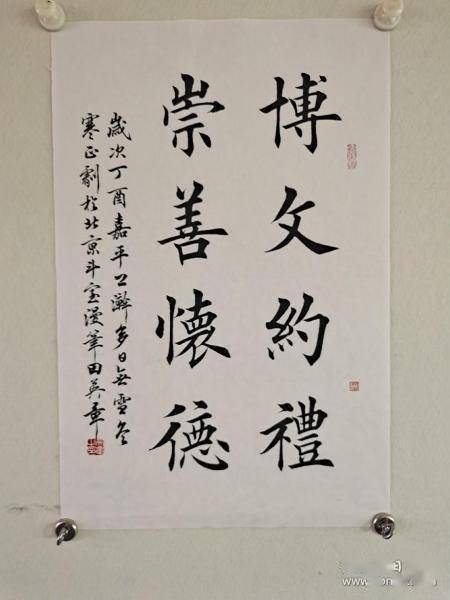 博文約禮
崇善懷德
歲次丁酉嘉平公澣多日無雪冬
寒正劇於北京斗室漫筆田英章
www.